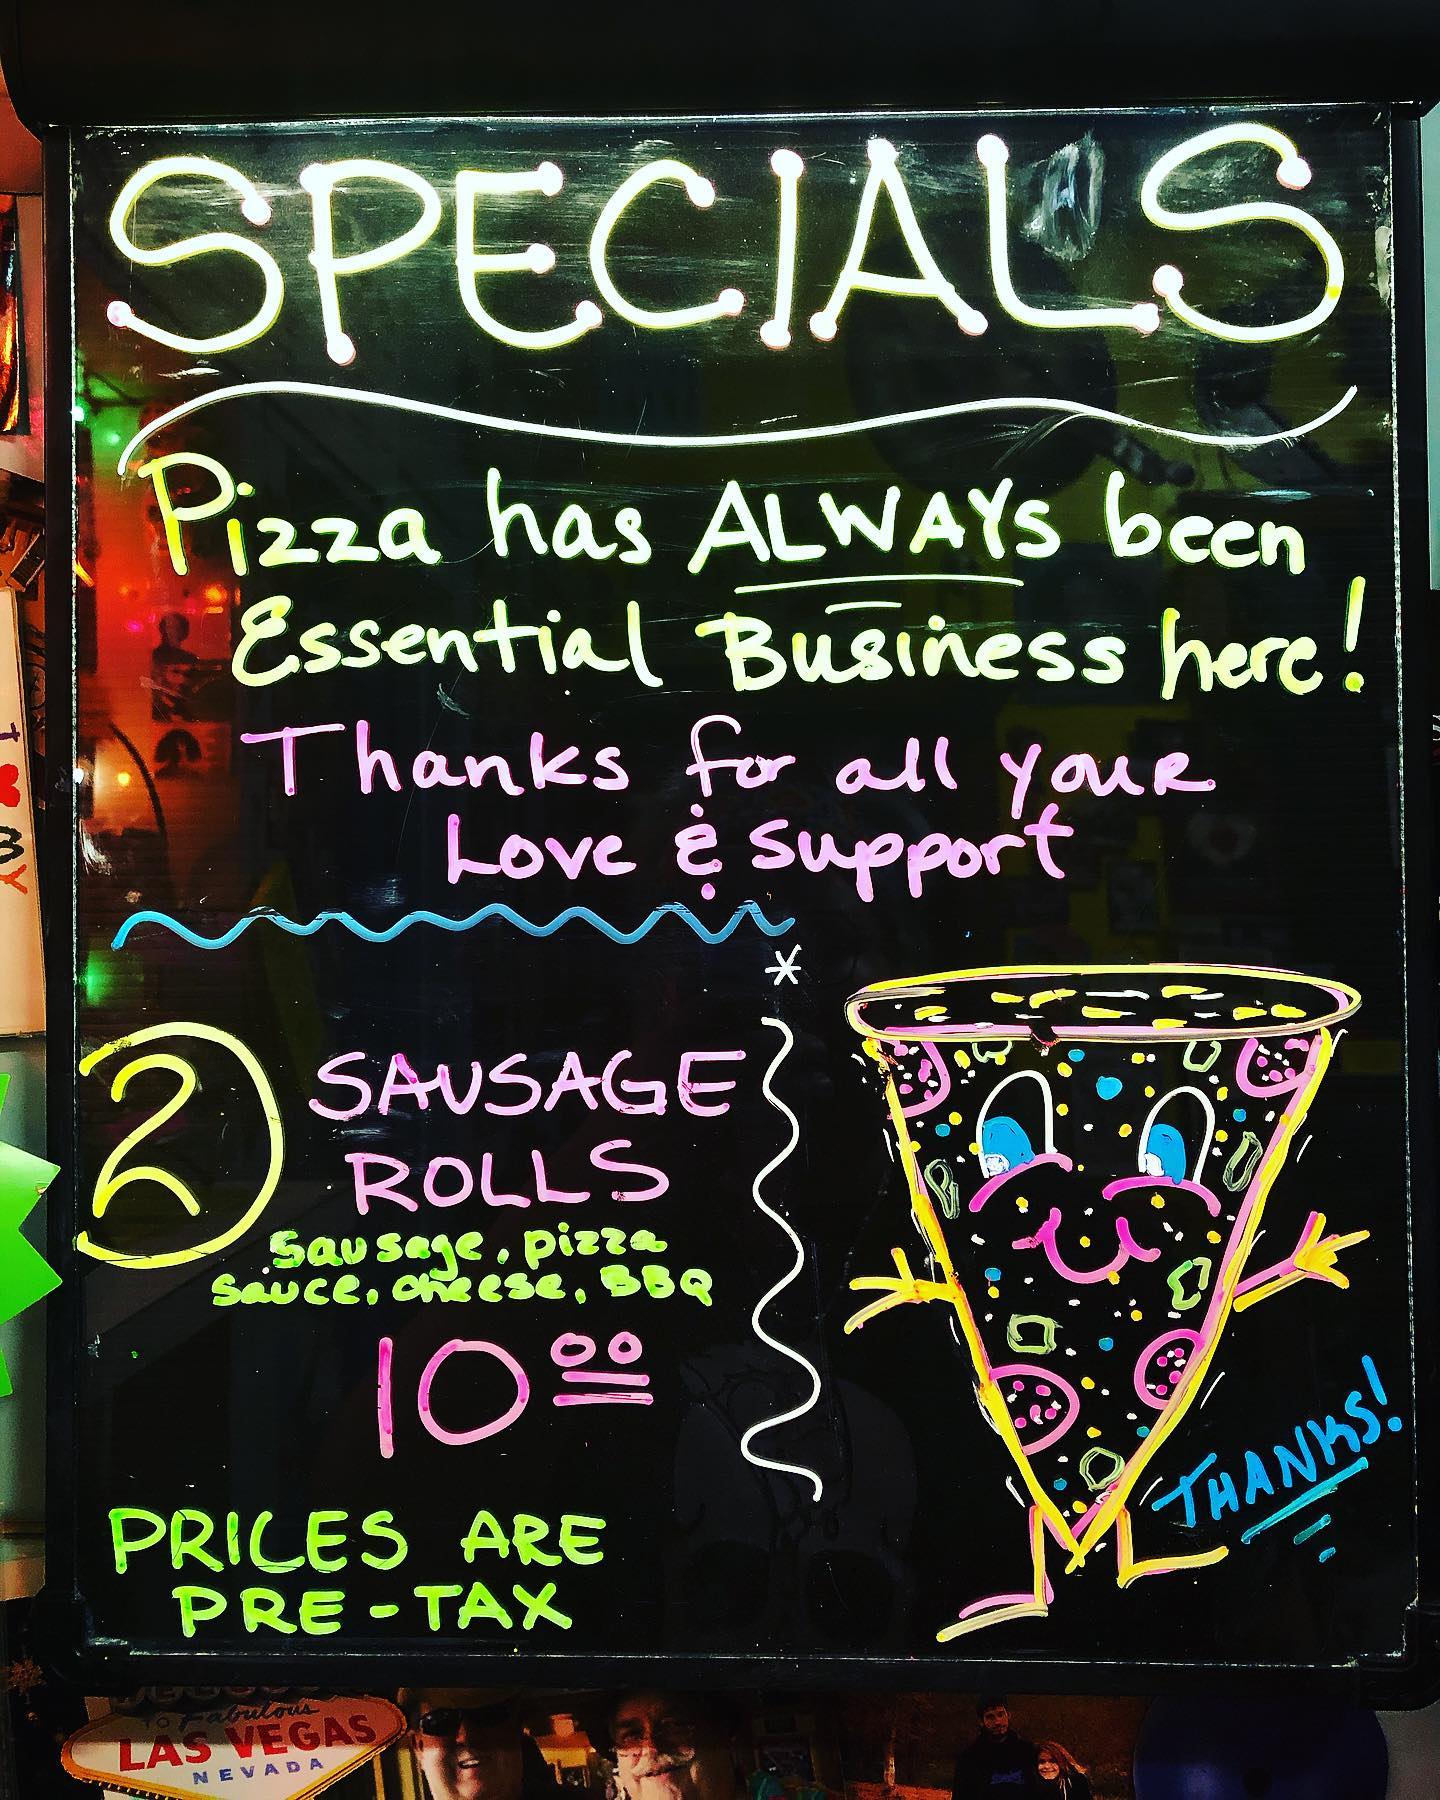 SPECIALS
Pizza has ALWAYS been
Essential Business here!
Thanks for all your
Love & support
*
2 SAUSAGE
ROLLS
Sausage, pizza
sauce, cheese, BBQ
10 00
PRICES ARE
PRE-TAX
THANKS!
TO Fabulous
LAS VEGAS
NEVADA